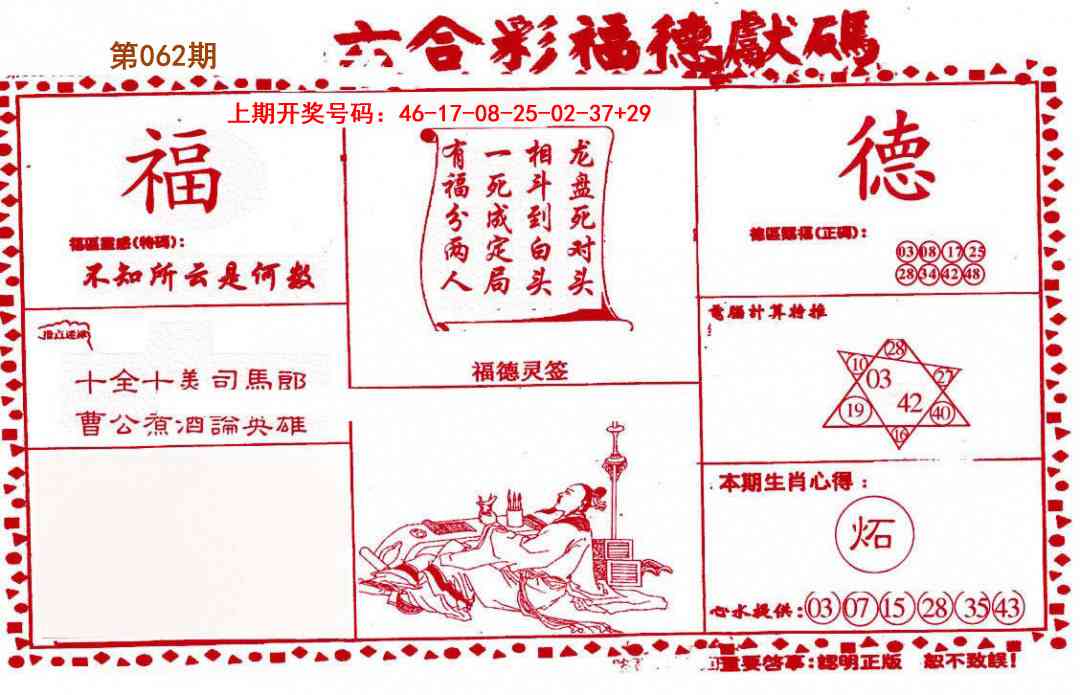 六合彩福德獻碼
第062期
上期开奖号码：46-17-08-25-02-37+29
福
福區靈感(特碼)：
不知所云是何数
十全十美司馬郎
曹公煮酒論英雄
龙盘死对头
相斗到白头
一死成定局
有福分两人
福德灵签
德
(正碼)：
03 08 17 25
28 34 42 48
電腦計算特推
28
10
03
27
19
42
40
16
本期生肖心得：
炻
心水提供：03 07 15 28 35 43
重要啓事：認明正版 恕不致誤！